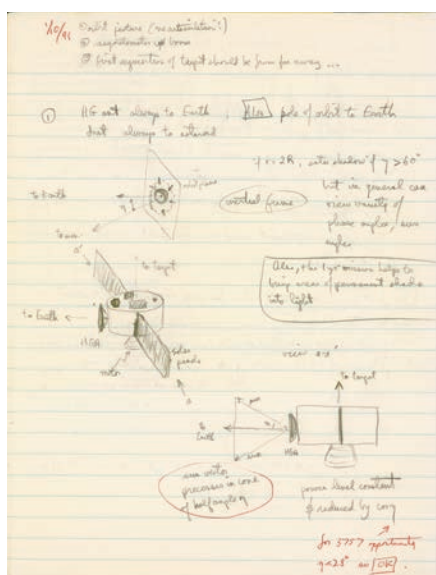 orbit picture (no articulation!)
magnetometer boom
first acquisition of target should be from far away ...
① HG ant always to Earth, Also pole of orbit to Earth
inst always to asteroid
if r = 2R, into shadow if η > 60°
but in general can
view variety of
phase angles, sun
angles
inertial frame
to Earth
to sun
orbit plane
η
Also, the 1 yr mission helps to
bring areas of permanent shade
into light
to target
to Earth
HGA
motor
solar
panels
view
to target
to
Earth
sun
sun
HGA
sun vector
precesses in cone
of half angle η
power level constant
reduced by cos η
for opportunity
η < 25° so OK.